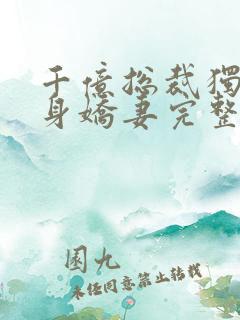 千億總裁獨
身嬌妻完整
團九
未經同意禁止轉載